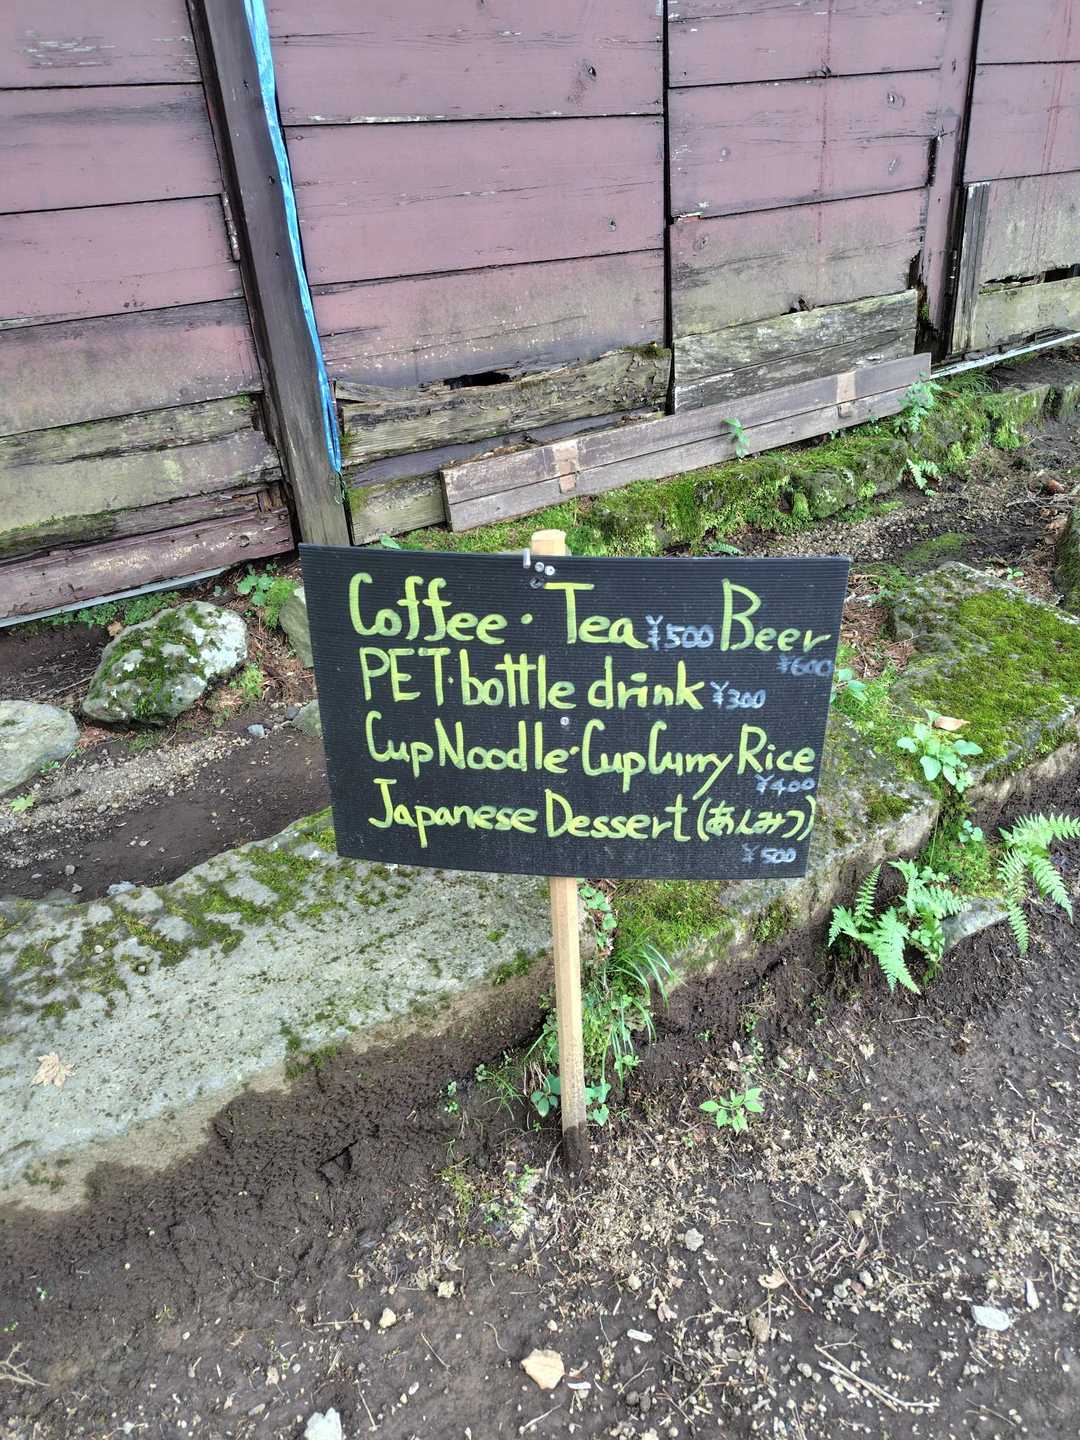 Coffee・Tea ¥500 Beer ¥600
PET・bottle drink ¥300
Cup Noodle・Cup Curry Rice ¥400
Japanese Dessert (あんみつ)
¥500